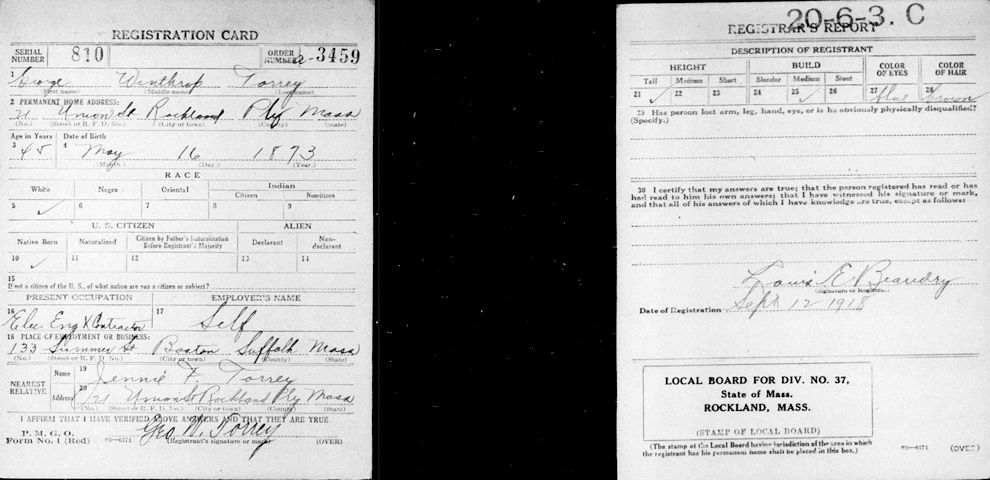 REGISTRATION CARD
SERIAL NUMBER 810 ORDER NUMBER a-3459
1 George Winthrop Torrey
(First name) (Middle name) (Last name)
2 PERMANENT HOME ADDRESS:
21 Union St Rockland Ply Mass
(No.) (Street or R. F. D. No.) (City or town) (County) (State)
Age in Years Date of Birth
3 45 4 May 16 1873
(Month.) (Day.) (Year.)
RACE
White Negro Oriental Indian
Citizen Noncitizen
5 ✓ 6 7 8 9
U. S. CITIZEN ALIEN
Native Born Naturalized Citizen by Father's Naturalization Before Registrant's Majority Declarant Non-declarant
10 ✓ 11 12 13 14
15
If not a citizen of the U. S., of what nation are you a citizen or subject?
PRESENT OCCUPATION EMPLOYER'S NAME
16 Elec Eng & Contractor 17 Self
18 PLACE OF EMPLOYMENT OR BUSINESS:
133 Summer St Boston Suffolk Mass
(No.) (Street or R. F. D. No.) (City or town) (County) (State)
NEAREST RELATIVE Name 19 Jennie F. Torrey
Address 20 21 Union St Rockland Ply Mass
(No.) (Street or R. F. D. No.) (City or town) (County) (State)
I AFFIRM THAT I HAVE VERIFIED ABOVE ANSWERS AND THAT THEY ARE TRUE
P. M. G. O.
Form No. 1 (Red) 03—6171 Geo W. Torrey
(Registrant's signature or mark) (OVER)
20-6-3. C
REGISTRAR'S REPORT
DESCRIPTION OF REGISTRANT
HEIGHT BUILD COLOR OF EYES COLOR OF HAIR
Tall Medium Short Slender Medium Stout
21 ✓ 22 23 24 25 ✓ 26 27 blue 28 brown
29 Has person lost arm, leg, hand, eye, or is he obviously physically disqualified?
(Specify.)
30 I certify that my answers are true; that the person registered has read or has
had read to him his own answers; that I have witnessed his signature or mark,
and that all of his answers of which I have knowledge are true, except as follows:
Louis E Beaudry
(Signature of Registrar)
Date of Registration Sept 12 1918
LOCAL BOARD FOR DIV. NO. 37,
State of Mass.
ROCKLAND, MASS.
(STAMP OF LOCAL BOARD)
(The stamp of the Local Board having jurisdiction of the area in which
the registrant has his permanent home shall be placed in this box.)
03—6171 (OVER)